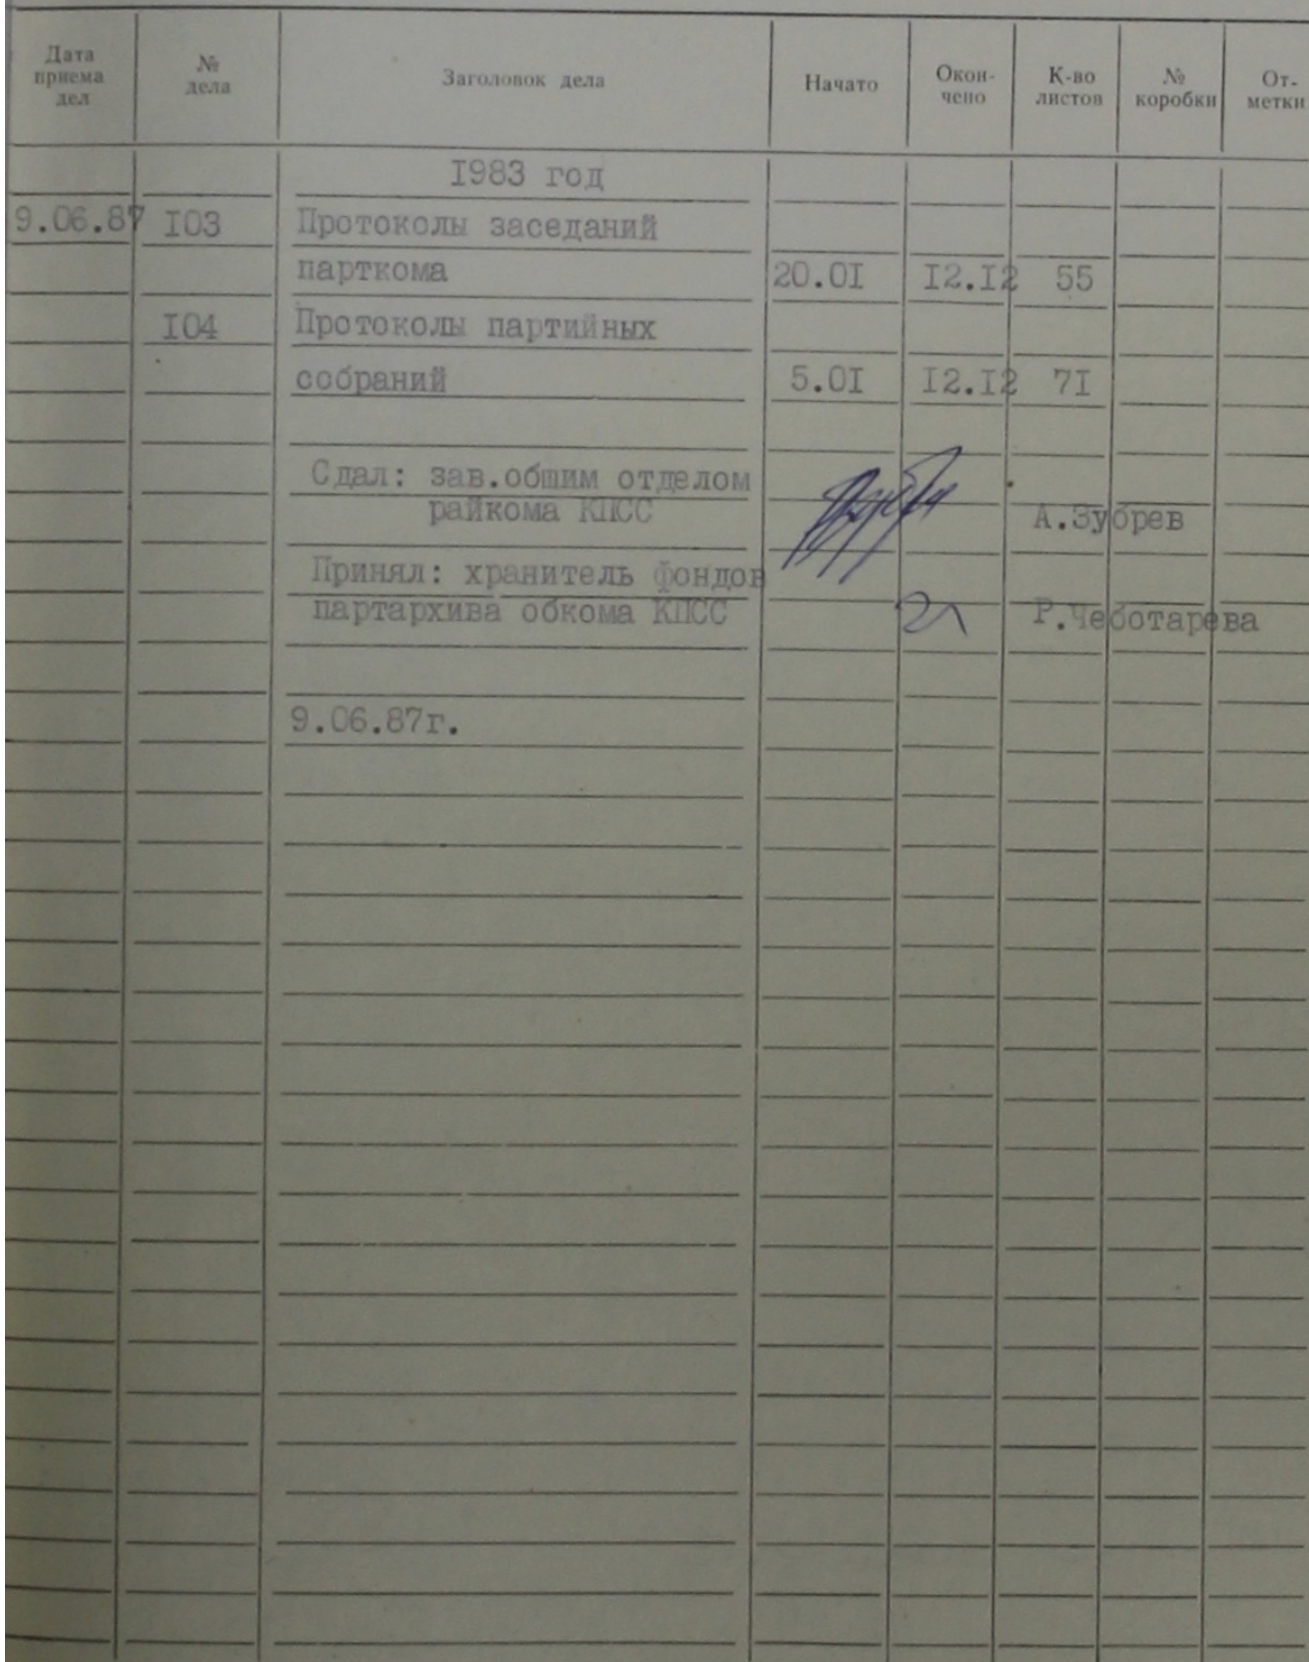 Дата приема дел № дела Заголовок дела Начато Окон- чено К-во листов № коробки От- метки
I983 год
9.06.87 I03 Протоколы заседаний
парткома 20.0I I2.I2 55
I04 Протоколы партийных
собраний 5.0I I2.I2 7I
Сдал: зав.общим отделом
райкома КПСС А.Зубрев
Принял: хранитель фондов
партархива обкома КПСС Р.Чеботарева
9.06.87г.